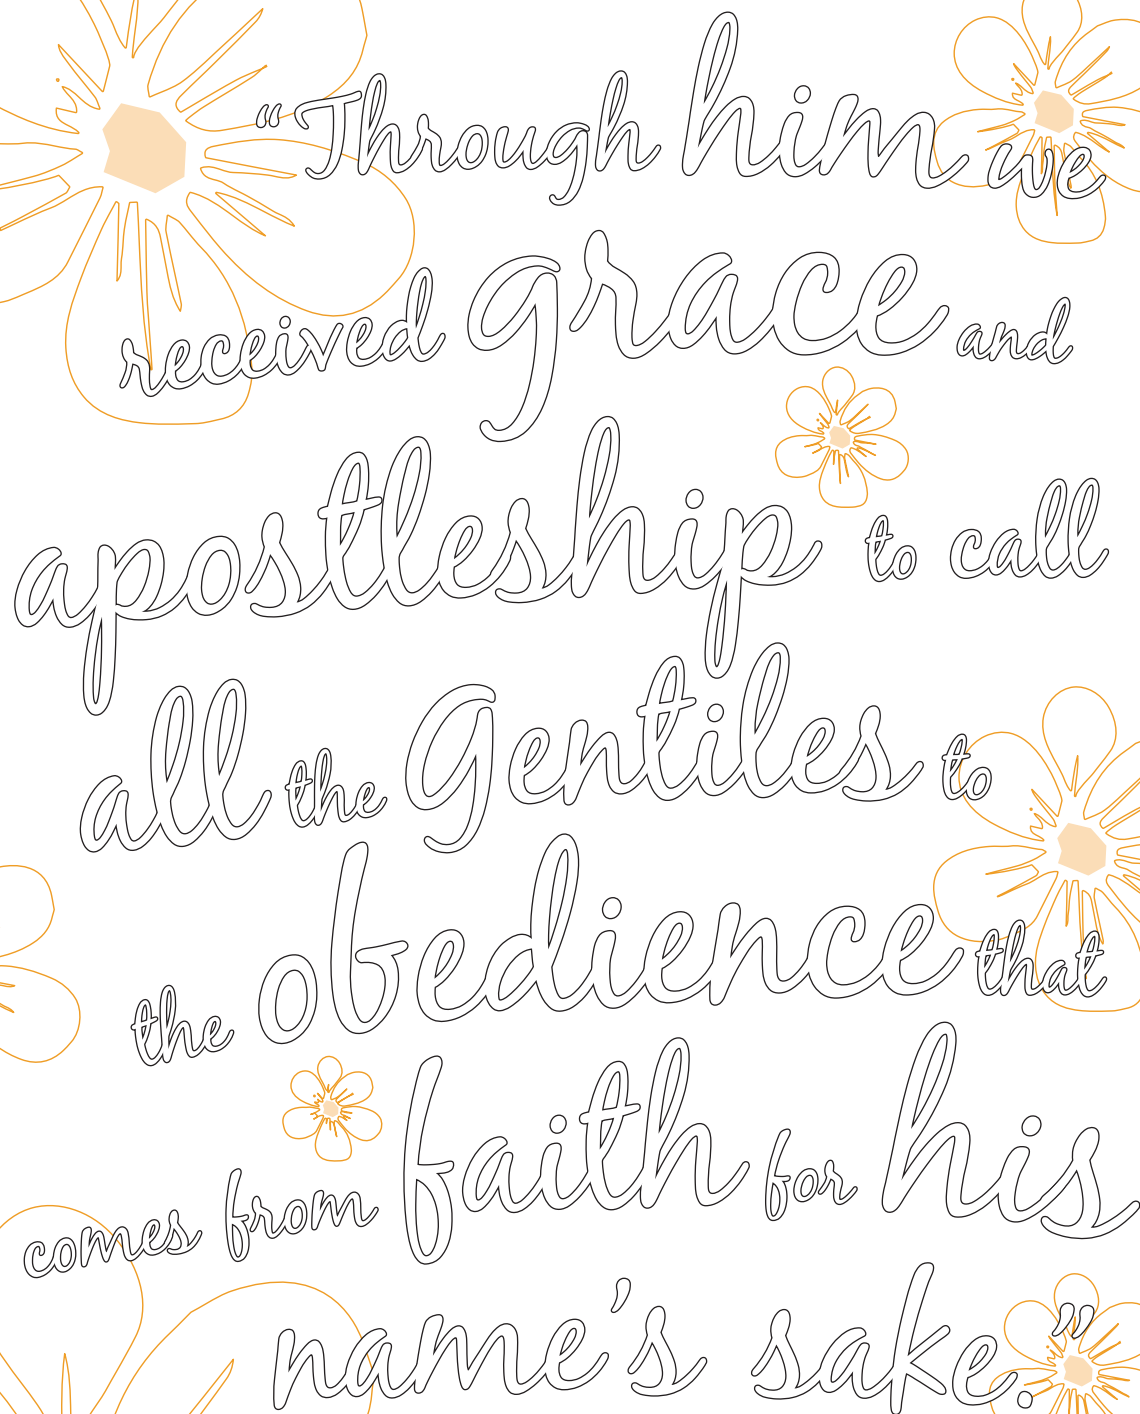 “Through him we
received grace and
apostleship to call
all the Gentiles to
the obedience that
comes from faith for his
name’s sake.”